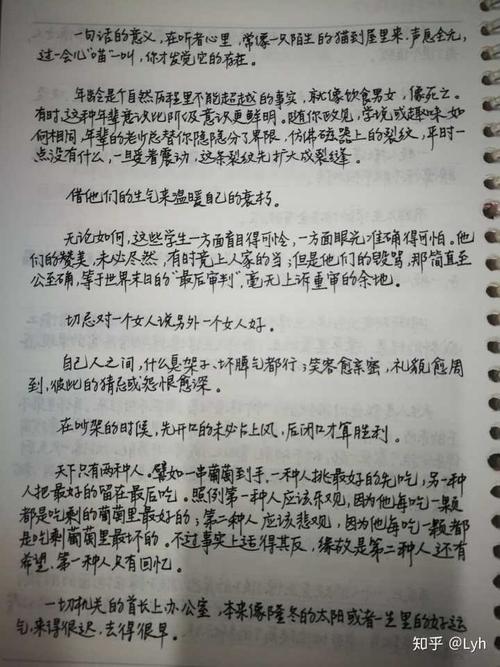 一句话的意义，在听者心里，常像一只陌生的猫到屋里来，声息全无，
过一会儿“喵”一叫，你才发觉它的存在。
年龄是个自然历程里不能超越的事实，就像饮食男女，像死亡。
有时，这种年辈意识比阶级意识更鲜明。随你政见，学说或趣味如
何相同，年辈的老少总替你隐隐分了界限，仿佛磁器上的裂纹，平时一
点没有什么，一旦受着震动，这条裂纹先扩大成裂缝。
借他们的生气来温暖自己的衰朽。
无论如何，这些学生一方面盲目得可怜，一方面眼光准确得可怕。他
们的赞美，未必尽然，有时竟上人家的当；但是他们的毁骂，那简直至
公至确，等于世界末日的“最后审判”，毫无上诉重审的余地。
切忌对一个女人说另外一个女人好。
自己人之间，什么臭架子、坏脾气都行；笑容愈亲密，礼貌愈周
到，彼此的猜忌或怨恨愈深。
在吵架的时候，先开口的未必占上风，后闭口才算胜利。
天下只有两种人。譬如一串葡萄到手，一种人挑最好的先吃，另一种
人把最好的留在最后吃。照例第一种人应该乐观，因为他每吃一颗
都是吃剩的葡萄里最好的；第二种人应该悲观，因为他每吃一颗都
是吃剩葡萄里最坏的。不过事实上适得其反，缘故是第二种人还有
希望，第一种人只有回忆。
一切机关的首长上办公室，本来像隆冬的太阳或者一生里的好运
气，来得很迟，去得很早。
知乎 @Lyh